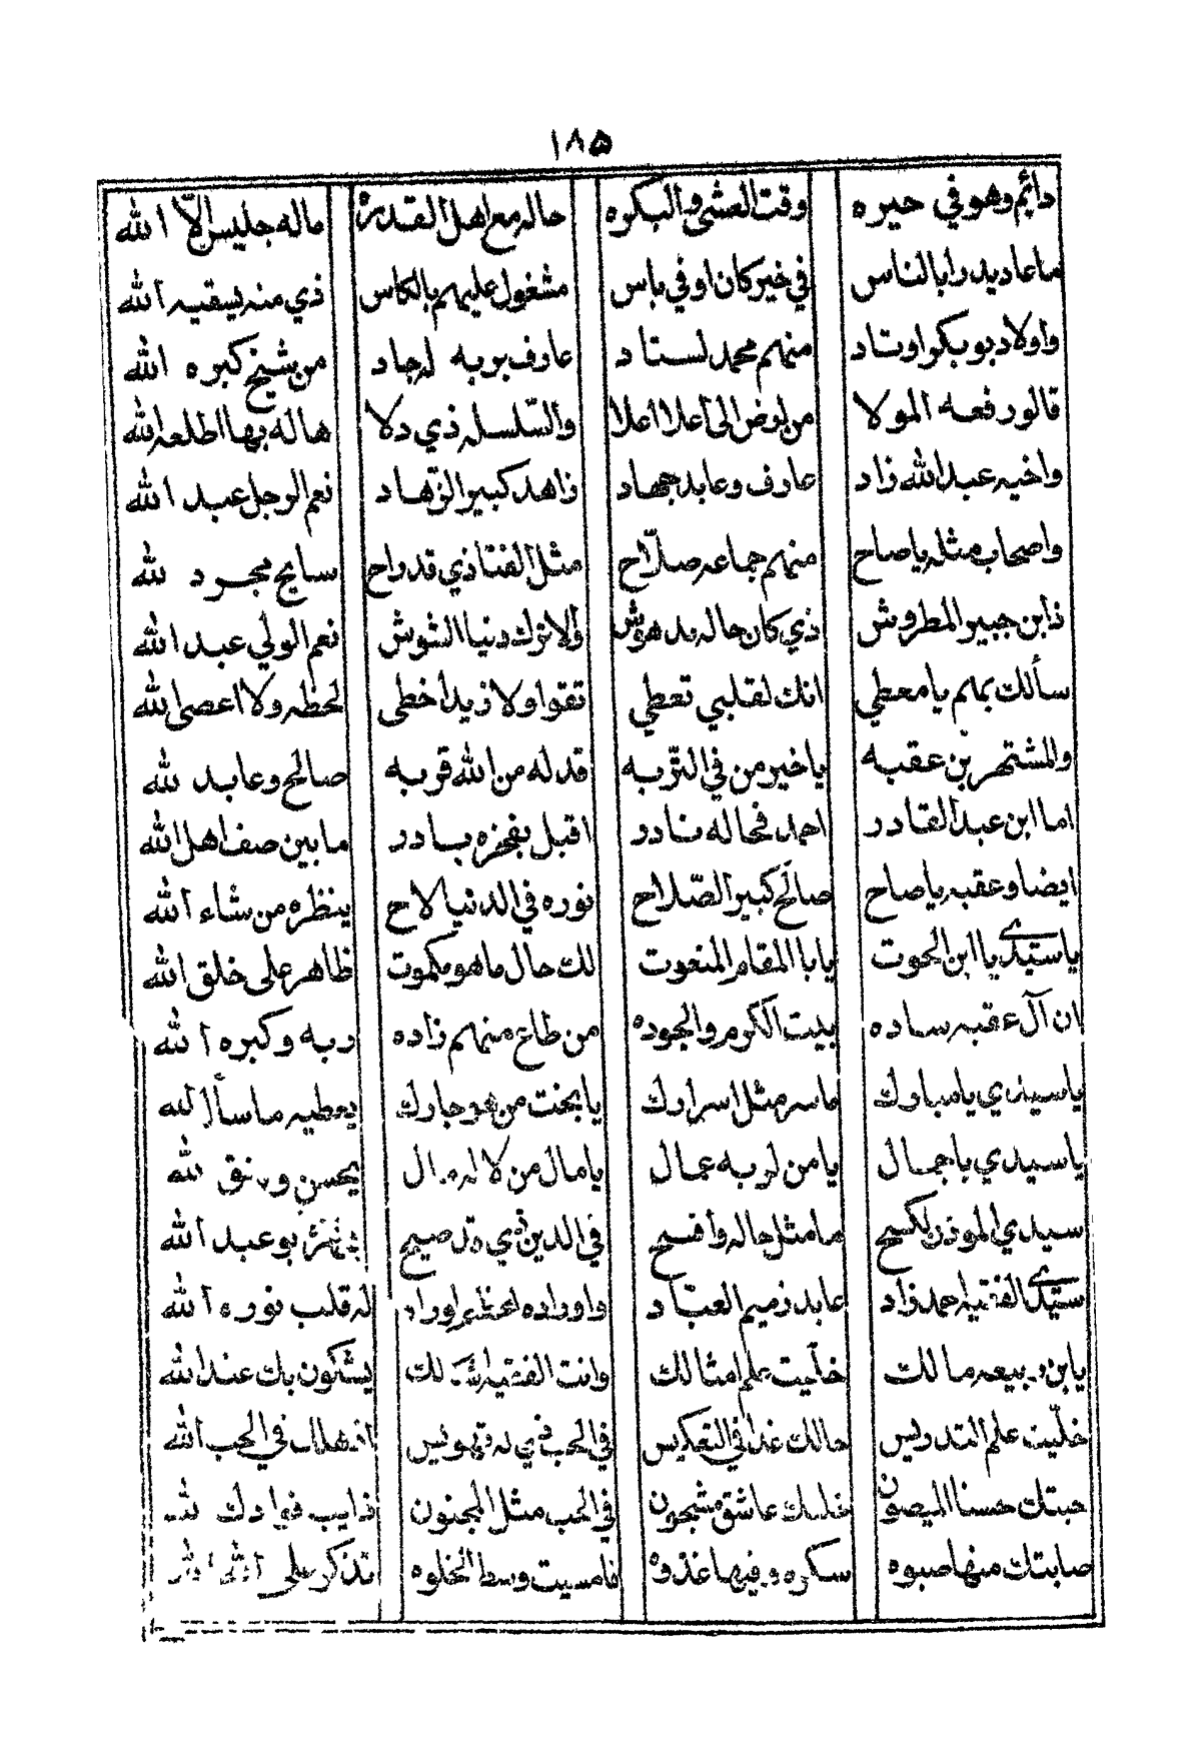 ١٨٥
دائم وهو في حيره وقت العشي والبكره حاله مع اهل القدره ماله جليس الا الله
ما عاد يدرا بالناس في خير كان او في باس مشغول عليهم بالكاس ذي منه يسقيه الله
واولاد بوبكر اوتاد منهم محمد لستاد عارف بربه له جاد من شيخ كبره الله
قالو رفعه المولا الى اعلا اعلا والسّلسله ذي دلا هاله بها اطلعه الله
واخيه عبدالله زاد عارف وعابد جهاد زاهد كبير الزهاد نعم الرجل عبد الله
واصحاب مثله ياصاح منهم جماعه صلّاح مثل الفتا ذي قد راح سايح مجرد لله
ذا بن جبير المطروش ذي كان حاله مدهوش والا ترك دنيا الشوش نعم الولي عبد الله
سألك بهم يا معطي انك لقلبي تعطي تقوا ولا زيد اخطي لحظه ولا اعصى لله
والمشتهر بن عقبه ياخير من في التّربه قد له من الله قربه صالح وعابد لله
اما ابن عبد القادر احمد فحاله نادر اقبل بفخره بادر ما بين صف اهل الله
ايضا وعقبه ياصاح صالح كبير الصّلاح نوره في الدنيا لاح ينظره من شاء الله
ياسيّدي يا ابن الحوت يابا المقام المنعوت لك حال ما هو مكموت ظاهر على خلق الله
ان آل عقبه ساده بيت الكرم والجوده من طاع منهم زاده ربه وكبره الله
ياسيدي يا مبارك ما سر مثل اسرارك يا بخت من هو جارك يعطيه ما سأل لله
ياسيدي يا جمال يا من لربه عمال يا مال من لا له مال يحسن وينفق لله
سيدي الموذن لكسح ما مثل حاله وافسح في الدين ذي قد صبح بو عبد الله
سيّدي الفقيه احمد زاد عابد زميم العبّاد واوراده اوراد له قلب نوره الله
يا بن ربيعه مالك خلّيت علم امثالك وانت الفقيه لك يشكون بك عند الله
خلّيت علم التدريس حالك غدا في التعكيس في الحب ذي له تهويس في الحب الله
حبتك حسنا الميصون خلتك عاشق مشجون في الحب مثل المجنون ذايب فوادك لله
صابتك منها صبوه سكره وفيها غذوه فامسيت وسط الخلوه تذكر على الله